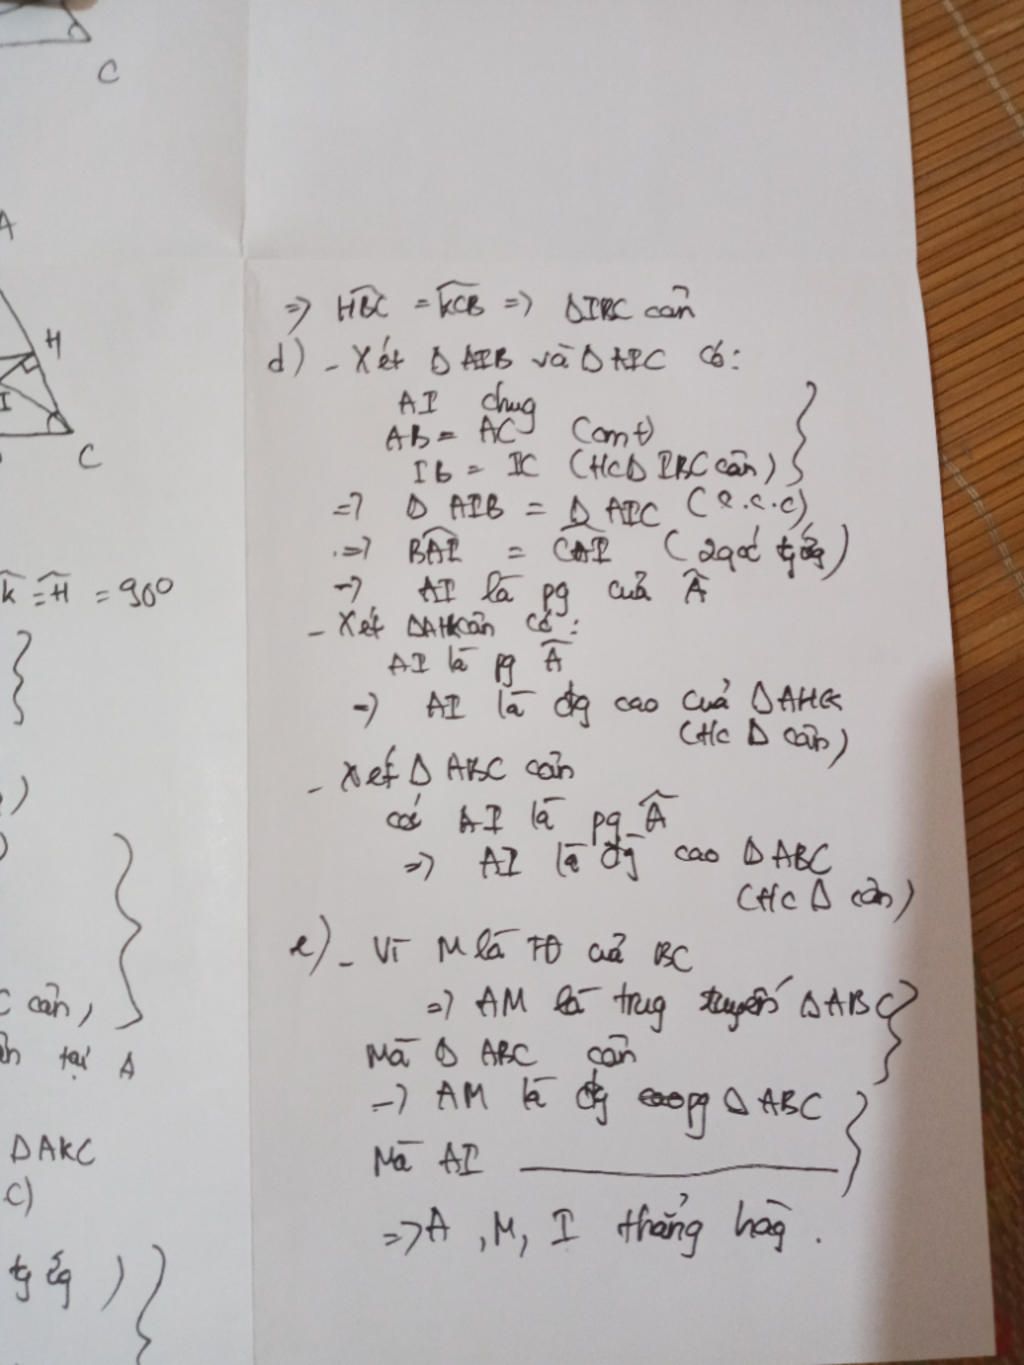 C
A
H
I
C
K̂ = Ĥ = 90°
C cân,
tại A
ΔAKC
C)
tg ứg )
=> HBC = KCB => ΔIBC cân
d) - Xét Δ AIB và Δ AIC có:
AI chug
AB = AC (cmt)
IB = IC (HcΔ IBC cân)
=> Δ AIB = Δ AIC (c.c.c)
=> BAI = CAI (2 góc tg ứg)
-> AI là pg của Â
- Xét ΔAHK cân có:
AI là pg Â
-> AI là đg cao của ΔAHK
(Hc Δ cân)
- Xét Δ ABC cân
có AI là pg Â
=> AI là đg cao ΔABC
(Hc Δ cân)
e) - Vì M là TĐ của BC
=> AM là trug tuyến ΔABC
Mà Δ ABC cân
-> AM là đg pg Δ ABC
Mà AI
=> A, M, I thẳng hàg.